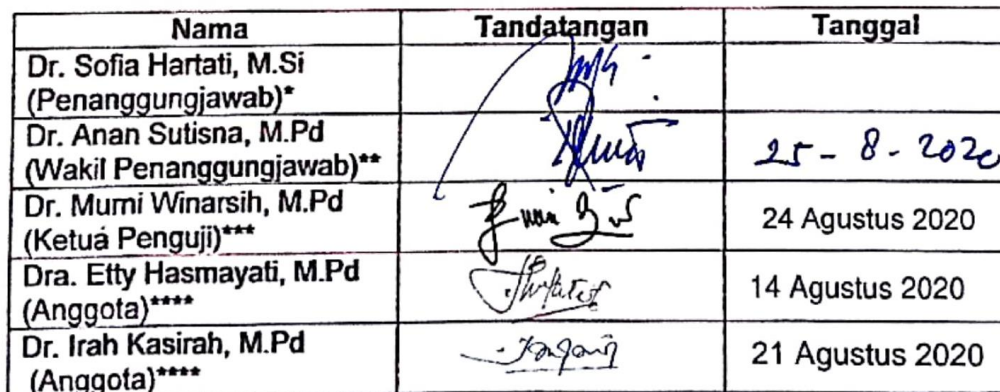 Nama Tandatangan Tanggal
Dr. Sofia Hartati, M.Si
(Penanggungjawab)*
Dr. Anan Sutisna, M.Pd
(Wakil Penanggungjawab)** 25 - 8 - 2020
Dr. Murni Winarsih, M.Pd
(Ketua Penguji)*** 24 Agustus 2020
Dra. Etty Hasmayati, M.Pd
(Anggota)**** 14 Agustus 2020
Dr. Irah Kasirah, M.Pd
(Anggota)**** 21 Agustus 2020